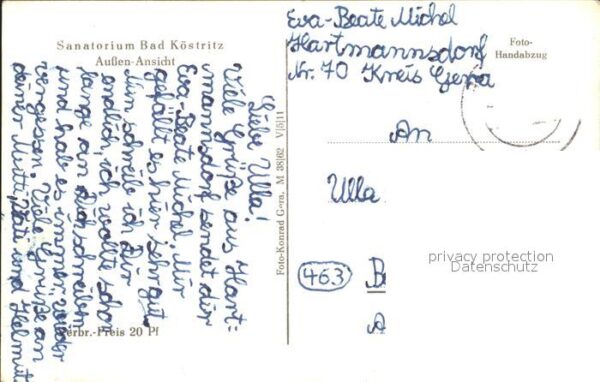 Sanatorium Bad Köstritz
Außen-Ansicht
Liebe Ulla!
Viele Grüße aus Hart=
mannsdorf sendet dir
Eva-Beate Michel. Mir
gefällt es hier sehr gut.
Nun schreibe ich Dir
endlich, ich wollte schon
lange an Dich schreiben
und hab es immer wieder
vergessen. Viele Grüße an
deiner Mutti, Vati und Helmut
Verbr.-Preis 20 Pf
Foto-Konrad Gera, M 38/62 V/5/11
Eva-Beate Michel
Hartmannsdorf
Nr. 70 Kreis Gera
Foto-
Handabzug
An
Ulla
privacy protection
Datenschutz
463 B
A